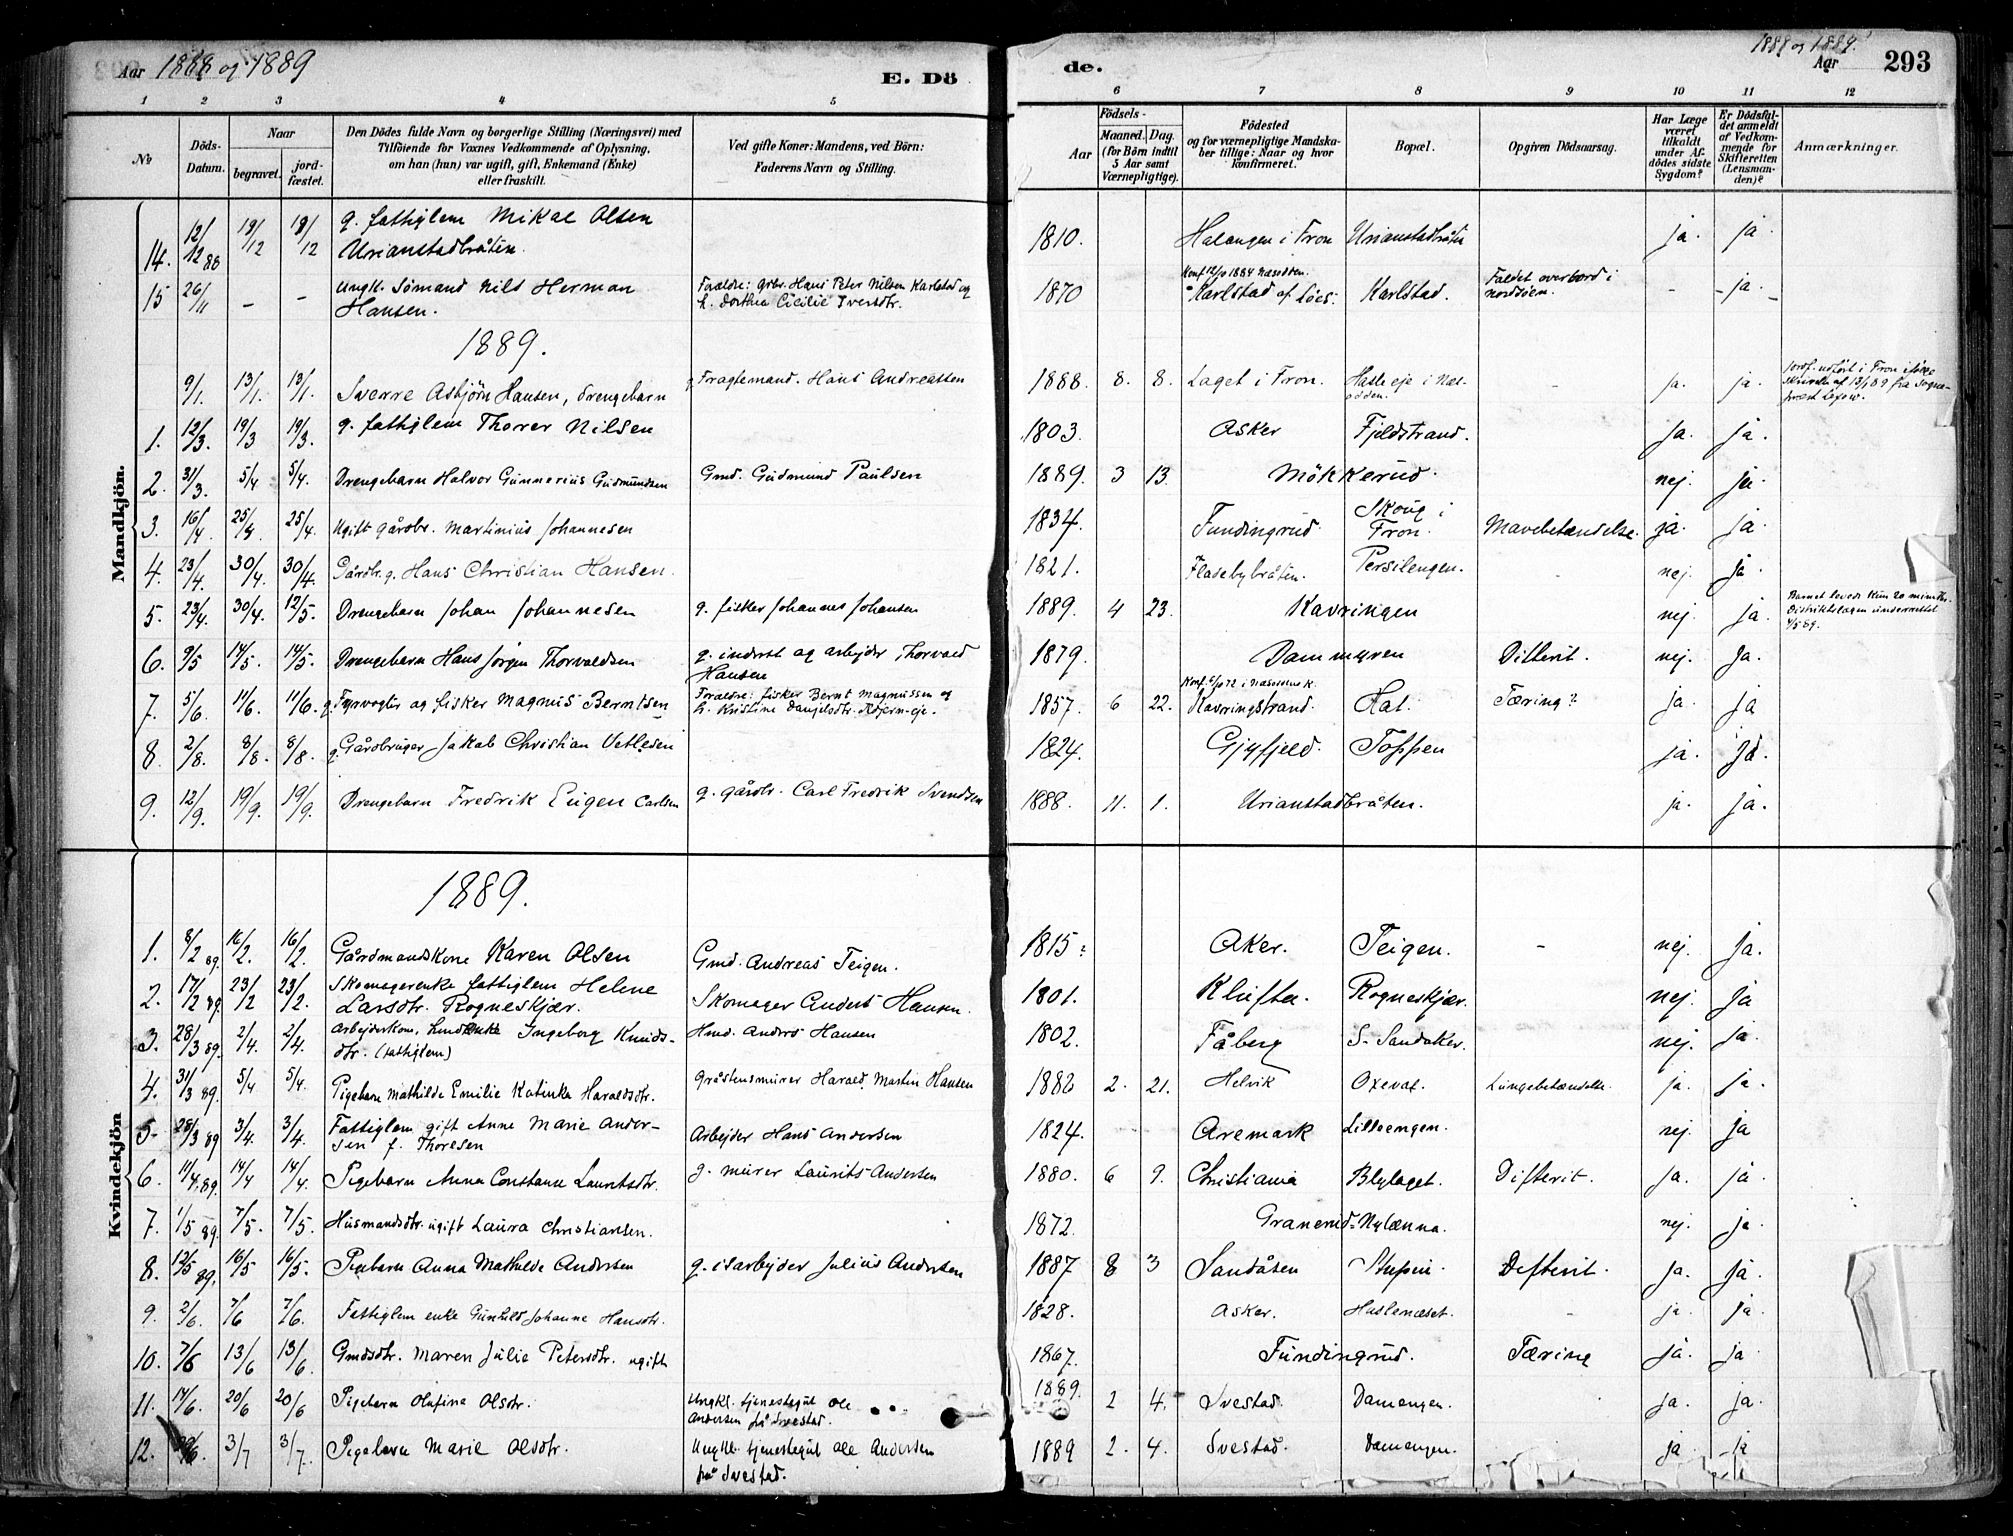 Aar 1888 og 1889
E. Dö
de.
1888 og 1889.
Aar 293
1 2 3 4 5 6 7 8 9 10 11 12
No
Döds-Datum.
Naar
begravet.
jord-fæstet.
Den Dödes fulde Navn og borgerlige Stilling (Næringsvei) med
Tilföiende for Voxnes Vedkommende af Oplysning,
om han (hun) var ugift, gift, Enkemand (Enke)
eller fraskilt.
Ved gifte Koner: Mandens, ved Börn:
Faderens Navn og Stilling.
Födsels-
Aar
Maaned. Dag.
(for Börn indtil
5 Aar samt
Værnepligtige).
Födested
og for værnepligtige Mandska-
ber tillige: Naar og hvor
konfirmeret.
Bopæl.
Opgiven Dödsaarsag.
Har Læge
været
tilkaldt
under Af-
dödes sidste
Sygdom?
Er Dödsfal-
det anmeldt
af Vedkom-
mende for
Skifteretten
(Lensman-
den)?
Anmærkninger.
Mandkjön.
14. 12/12 88 19/12 19/12 g. fattiglem Mikal Olsen 1810. Halangen i Fron Urianstadbråten ja. ja.
Urianstadbråten.
15 26/11 – – Ungk. Sömand Nils Herman Forældre: grbr. Hans Peter Nilsen Karlstad og 1870 Konf. 12/10 1884 Næsodden. Karlstad Karlstad. Faldet overbord i – – ja. –
Hansen. h. Dorthea Cicilie Iversdtr. Nordsöen.
1889.
9/1. 13/1. 13/1. Sverre Asbjörn Hansen, drengebarn g. Fragtemand. Hans Andreassen 1888. 8. 8. Laget i Fron. Hasle eje i Næs-odden. – ja. ja.
1. 12/3. 19/3 19/3. g. fattiglem Thorer Nilsen 1803. Asker Fjeldstrand. ja. ja.
2. 31/3. 5/4 5/4. Drengebarn Halvor Gunnerius Gudmundsen Gmd. Gudmund Paulsen 1889. 3 13. Mökkerud. nej. ja.
3. 16/4. 25/4. 25/4. Ugift gårdbr. Martinius Johannesen 1834. Fundingrud Skoug i Fron. Mavebetændelse. ja ja.
4. 23/4. 30/4. 30/4. Gårdbr. g. Hans Christian Hansen. 1821. Flasebybråten. Persilengen. – nej. ja.
5. 23/4. 30/4. 12/5. Drengebarn Johan Johannesen g. fisker Johannes Johansen 1889. 4 23. Kavringen nej ja. Barnet levede kun 20 minutter.
Distriktslægen underrettet
4/5 89.
6. 9/5 14/5. 14/5. Drengebarn Hans Jörgen Thorvaldsen g. inderst og arbejder Thorvald 1879. Dammyren Difterit. nej. ja.
Hansen
7. 5/6. 11/6. 11/6. g. Fyrvogter og fisker Magnus Berntsen Forældre: fisker Bernt Magnussen og 1857. 6 22. Konf. 6/10 72 i Næsodden k. Kavringstrand. Hal. Tæring? ja. ja
h. Kristine Danielsdtr.
8 2/8. 8/8. 8/8. g. Gårdbruger Jakob Christian Vetlesen 1824. Gjyfjeld. Toppen ja. ja.
9. 12/9. 19/9. 19/9. Drengebarn Fredrik Eugen Carlsen g. gårdbr. Carl Fredrik Svendsen 1888. 11. 1. Urianstadbråten. ja. ja.
Kvindekjön
1889.
1. 8/2 89. 16/2. 16/2. Gårdmandskone Karen Olsen Gmd. Andreas Teigen. 1815. Aker. Teigen. – nej. ja.
2. 17/2 89. 23/2 23/2. Skomagerenke fattiglem Helene Skomager Anders Hansen. 1801. Kløfta. Rogneskjær. nej. ja
Larsdtr. Rogneskjær.
3. 28/3 89. 2/4. 2/4. Arbejderkone, Ingeborg Knuds- Hmd. Anders Hansen 1802. Fåberg S. Sandaker. nej. ja.
dtr. (fattiglem)
4. 31/3 89. 5/4 5/4. Pigebarn Mathilde Emilie Katinka Haraldsdtr. Gråstensmurer Harald Martin Hansen 1886 2. 21. Helvik Oxeval. Lungebetændelse. ja. ja.
5. 28/3 89 3/4. 3/4. Fattiglem gift Anne Marie Ander- Arbejder Hans Andersen 1824. Aremark Lilleengen. nej. ja
sen f. Thoresen
6. 11/4 89. 14/4 14/4. Pigebarn Anna Constance Lauritsdtr. g. murer Laurits Andersen 1880. 6 9. Christiania Blylaget. Difterit. ja. ja
7. 1/5 89. 7/5. 7/5. Husmandsdtr. ugift Laura Christiansen. 1872. Granerud-Nylænna. nej. ja.
8. 12/5 89. 16/5 16/5. Pigebarn Anna Mathilde Andersen g. isarbejder Julius Andersen 1887 8 3 Sandåsen Stupin. Defterit. ja. ja.
9. 2/6. 7/6 7/6. Fattiglem enke Gunhild Johanne Hansdtr. 1828. Asker. Haslenæset. – ja ja.
10. 7/6 13/6 13/6. Gmdsdtr. Maren Julie Petersdtr. ugift 1867. Fundingrud. Tæring ja. ja
11. 14/6. 20/6 20/6 Pigebarn Olufine Olsdtr. Ungkl. tjenestegut Ole 1889. 2 4. Svestad. Damengen. ja. ja.
Andersen på Svestad.
12. 3/7 3/7. Pigebarn Marie Olsdtr. Ungkl. tjenestegut Ole Andersen 1889 2. 4. Svestad. Damengen. ja ja
på Svestad.